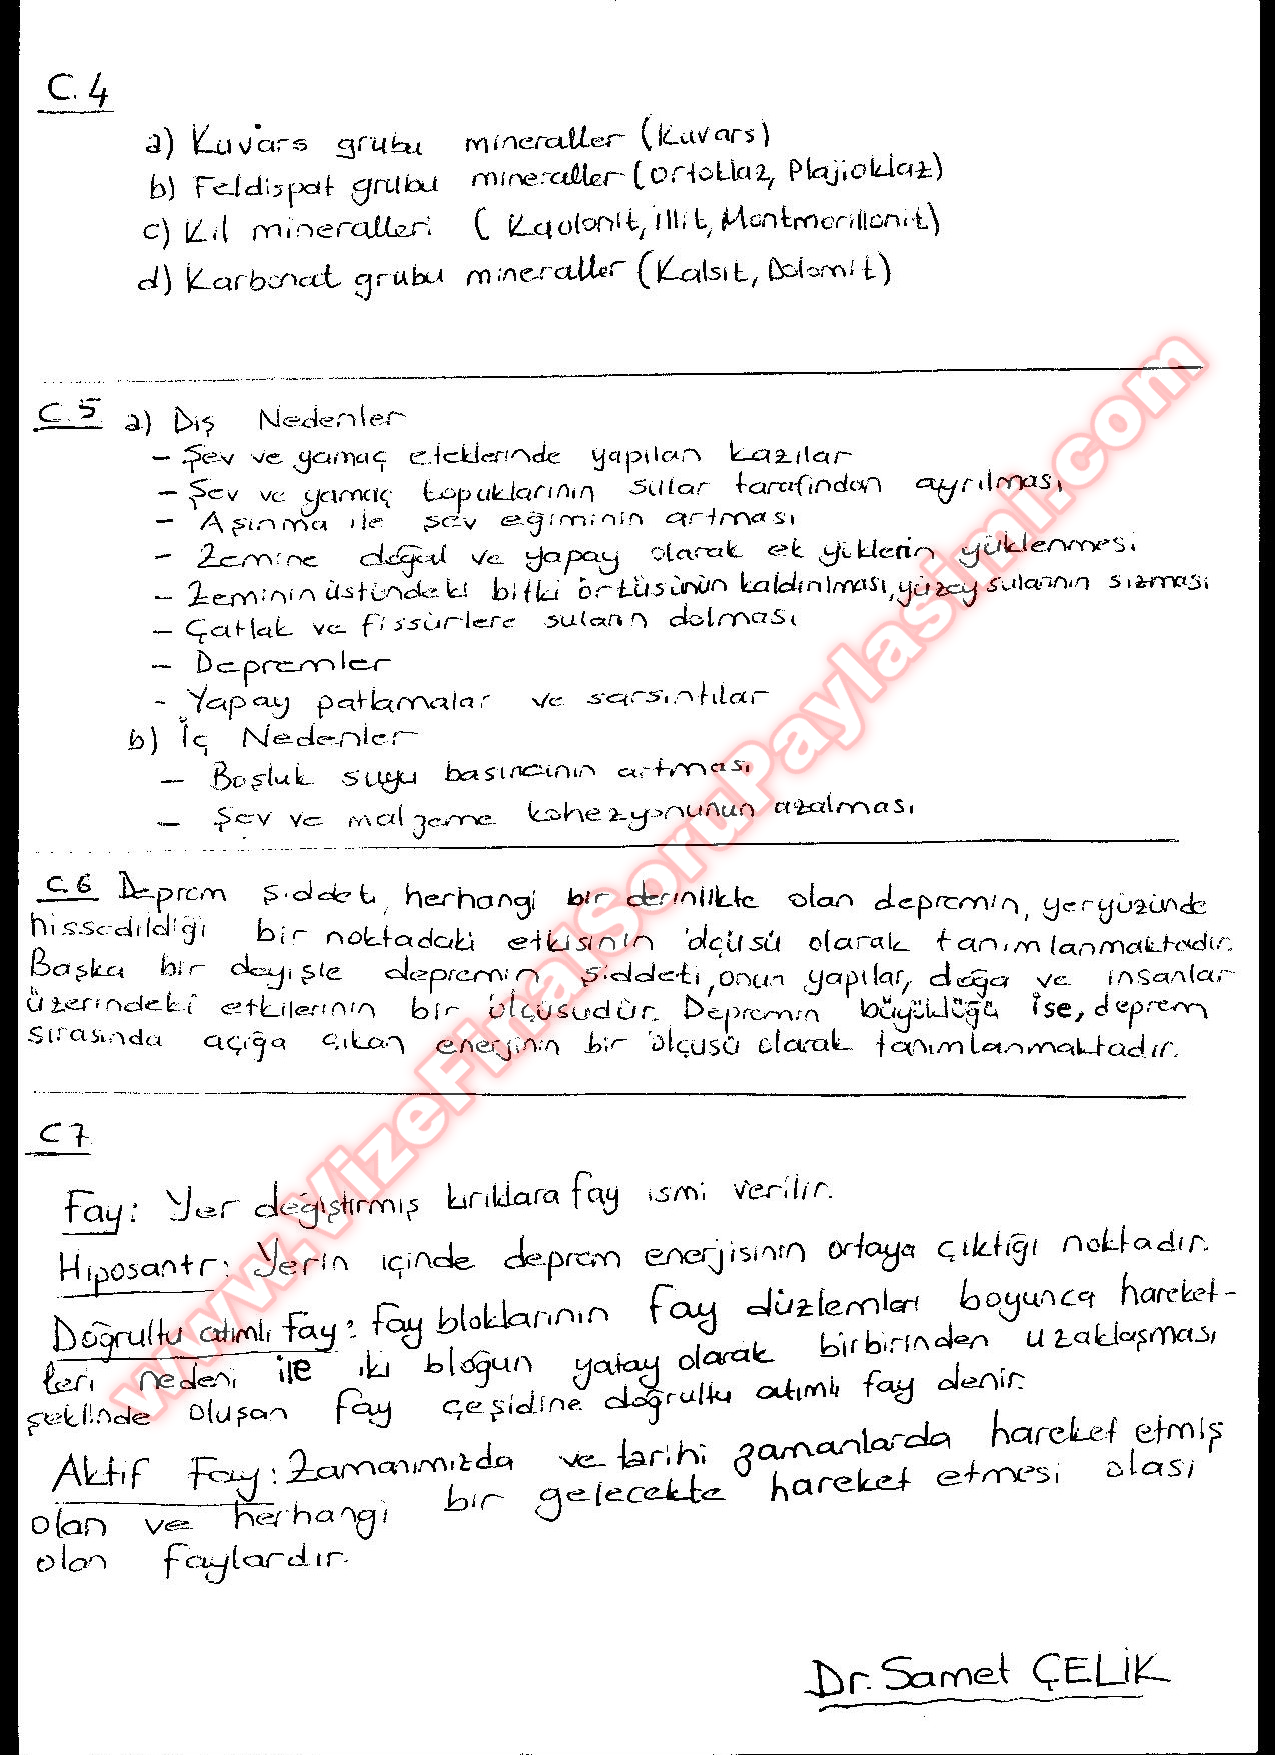 C.4
a) Kuvars grubu mineraller (Kuvars)
b) Feldispat grubu mineraller (Ortoklaz, Plajioklaz)
c) Kil mineralleri (Kaolonit, illit, Montmorillonit)
d) Karbonat grubu mineraller (Kalsit, Dolomit)
C.5 a) Dış Nedenler
- Şev ve yamaç eteklerinde yapılan kazılar
- Şev ve yamaç topuklarının sular tarafından ayrılması
- Aşınma ile şev eğiminin artması
- Zemine doğal ve yapay olarak ek yüklerin yüklenmesi
- Zeminin üstündeki bitki örtüsünün kaldırılması, yüzey sularının sızması
- Çatlak ve fissürlere suların dolması
- Depremler
- Yapay patlamalar ve sarsıntılar
b) İç Nedenler
- Boşluk suyu basıncının artması
- Şev ve malzeme kohezyonunun azalması
C.6 Deprem şiddeti, herhangi bir derinlikte olan depremin, yeryüzünde
hissedildiği bir noktadaki etkisinin ölçüsü olarak tanımlanmaktadır.
Başka bir deyişle depremin şiddeti, onun yapılar, doğa ve insanlar
üzerindeki etkilerinin bir ölçüsüdür. Depremin büyüklüğü ise, deprem
sırasında açığa çıkan enerjinin bir ölçüsü olarak tanımlanmaktadır.
C7
Fay: Yer değiştirmiş kırıklara fay ismi verilir.
Hiposantr: Yerin içinde deprem enerjisinin ortaya çıktığı noktadır.
Doğrultu atımlı fay: Fay bloklarının fay düzlemleri boyunca hareket-
leri nedeni ile iki bloğun yatay olarak birbirinden uzaklaşması
şeklinde oluşan fay çeşidine doğrultu atımlı fay denir.
Aktif Fay: Zamanımızda ve tarihi zamanlarda hareket etmiş
olan ve herhangi bir gelecekte hareket etmesi olası
olan faylardır.
Dr. Samet ÇELİK
www.VizeFinalSoruPaylasimi.com